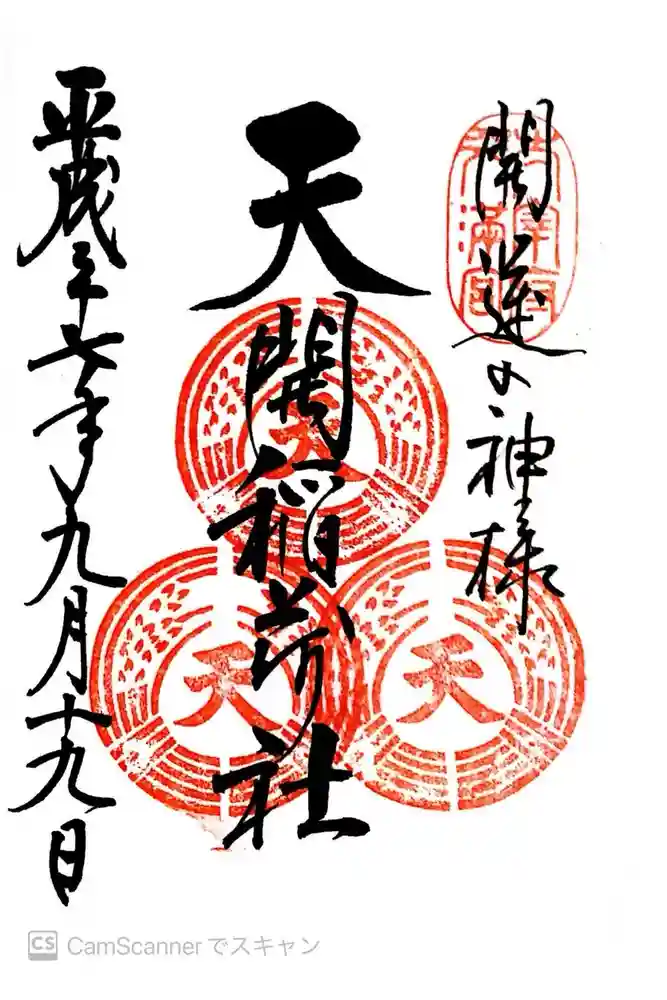 開運の神様
太宰府
天滿宮
天開稲荷社
平成二十七年九月十九日
天
天
天
CS CamScanner でスキャン